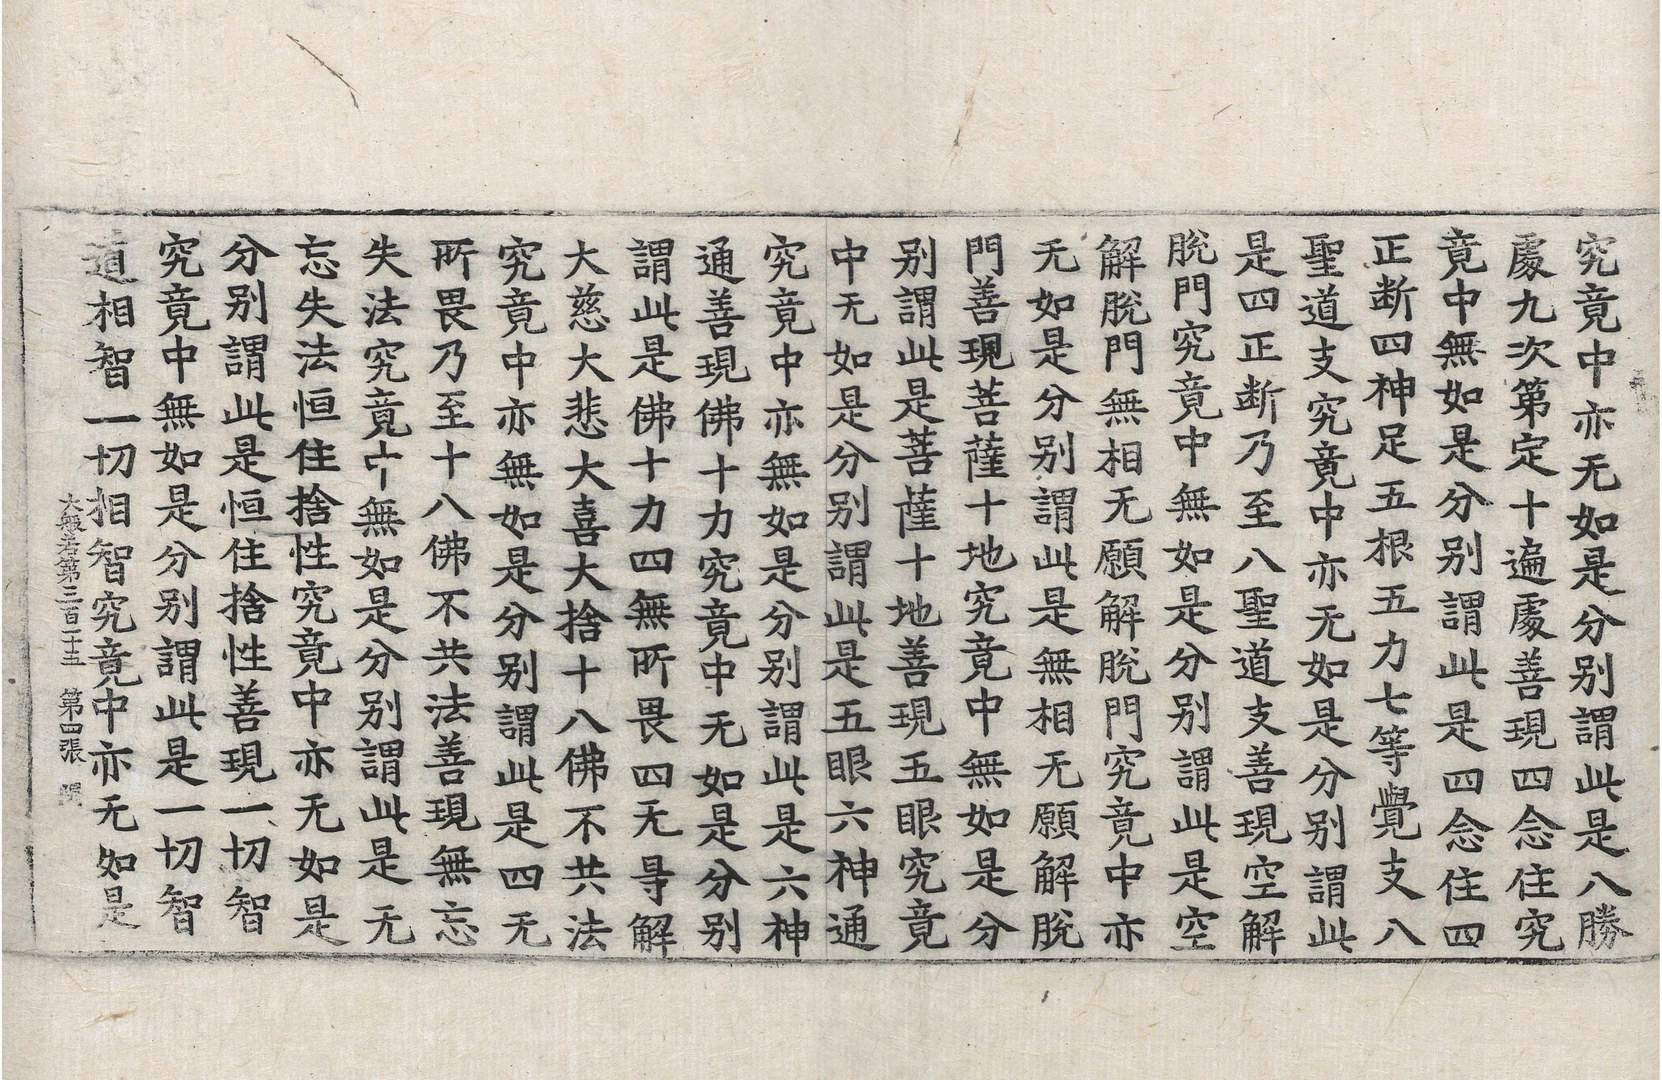 究竟中亦无如是分别謂此是八勝
處九次第定十遍處善現四念住究
竟中無如是分别謂此是四念住四
正断四神足五根五力七等覺支八
聖道支究竟中亦无如是分别謂此
是四正断乃至八聖道支善現空解
脫門究竟中無如是分别謂此是空
解脫門無相无願解脫門究竟中亦
无如是分别謂此是無相无願解脫
門善現菩薩十地究竟中無如是分
别謂此是菩薩十地善現五眼究竟
中无如是分别謂此是五眼六神通
究竟中亦無如是分别謂此是六神
通善現佛十力究竟中无如是分别
謂此是佛十力四無所畏四无㝵解
大慈大悲大喜大捨十八佛不共法
究竟中亦無如是分别謂此是四无
所畏乃至十八佛不共法善現無忘
失法究竟中無如是分别謂此是无
忘失法恒住捨性究竟中亦无如是
分别謂此是恒住捨性善現一切智
究竟中無如是分别謂此是一切智
道相智一切相智究竟中亦无如是
大般若第三百二十五 第四張